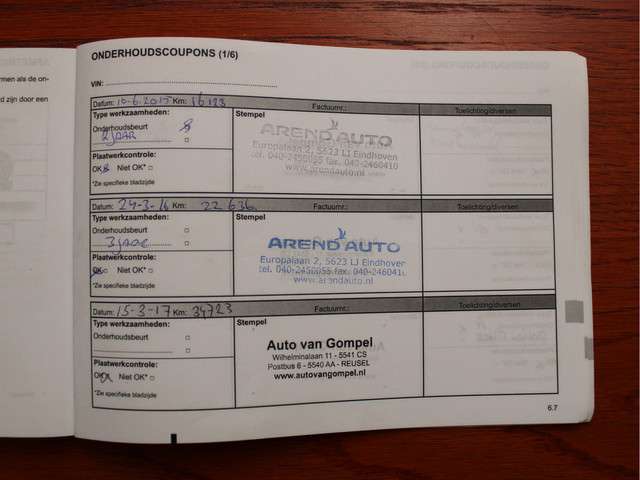 rmen als de on-
d zijn door een
ONDERHOUDSCOUPONS (1/6)
VIN:
Datum: 10-6-2015 Km: 16123 Factuurnr.: Toelichting/diversen
Type werkzaamheden: Stempel
Onderhoudsbeurt
2 JAAR
Plaatwerkcontrole:
OK Niet OK*
*Zie specifieke bladzijde
AREND AUTO
Europalaan 2, 5623 LJ Eindhoven
tel. 040-2456055 fax. 040-2460410
www.arendauto.nl
Datum: 24-3-16 Km: 22 636 Factuurnr.: Toelichting/diversen
Type werkzaamheden: Stempel
Onderhoudsbeurt
3 JAAR
Plaatwerkcontrole:
OK Niet OK*
*Zie specifieke bladzijde
AREND AUTO
Europalaan 2, 5623 LJ Eindhoven
tel. 040-2456055 fax. 040-246041
www.arendauto.nl
Datum: 15-3-17 Km: 34723 Factuurnr.: Toelichting/diversen
Type werkzaamheden: Stempel
Onderhoudsbeurt
Plaatwerkcontrole:
OK Niet OK*
*Zie specifieke bladzijde
Auto van Gompel
Wilhelminalaan 11 - 5541 CS
Postbus 6 - 5540 AA - REUSEL
www.autovangompel.nl
6.7